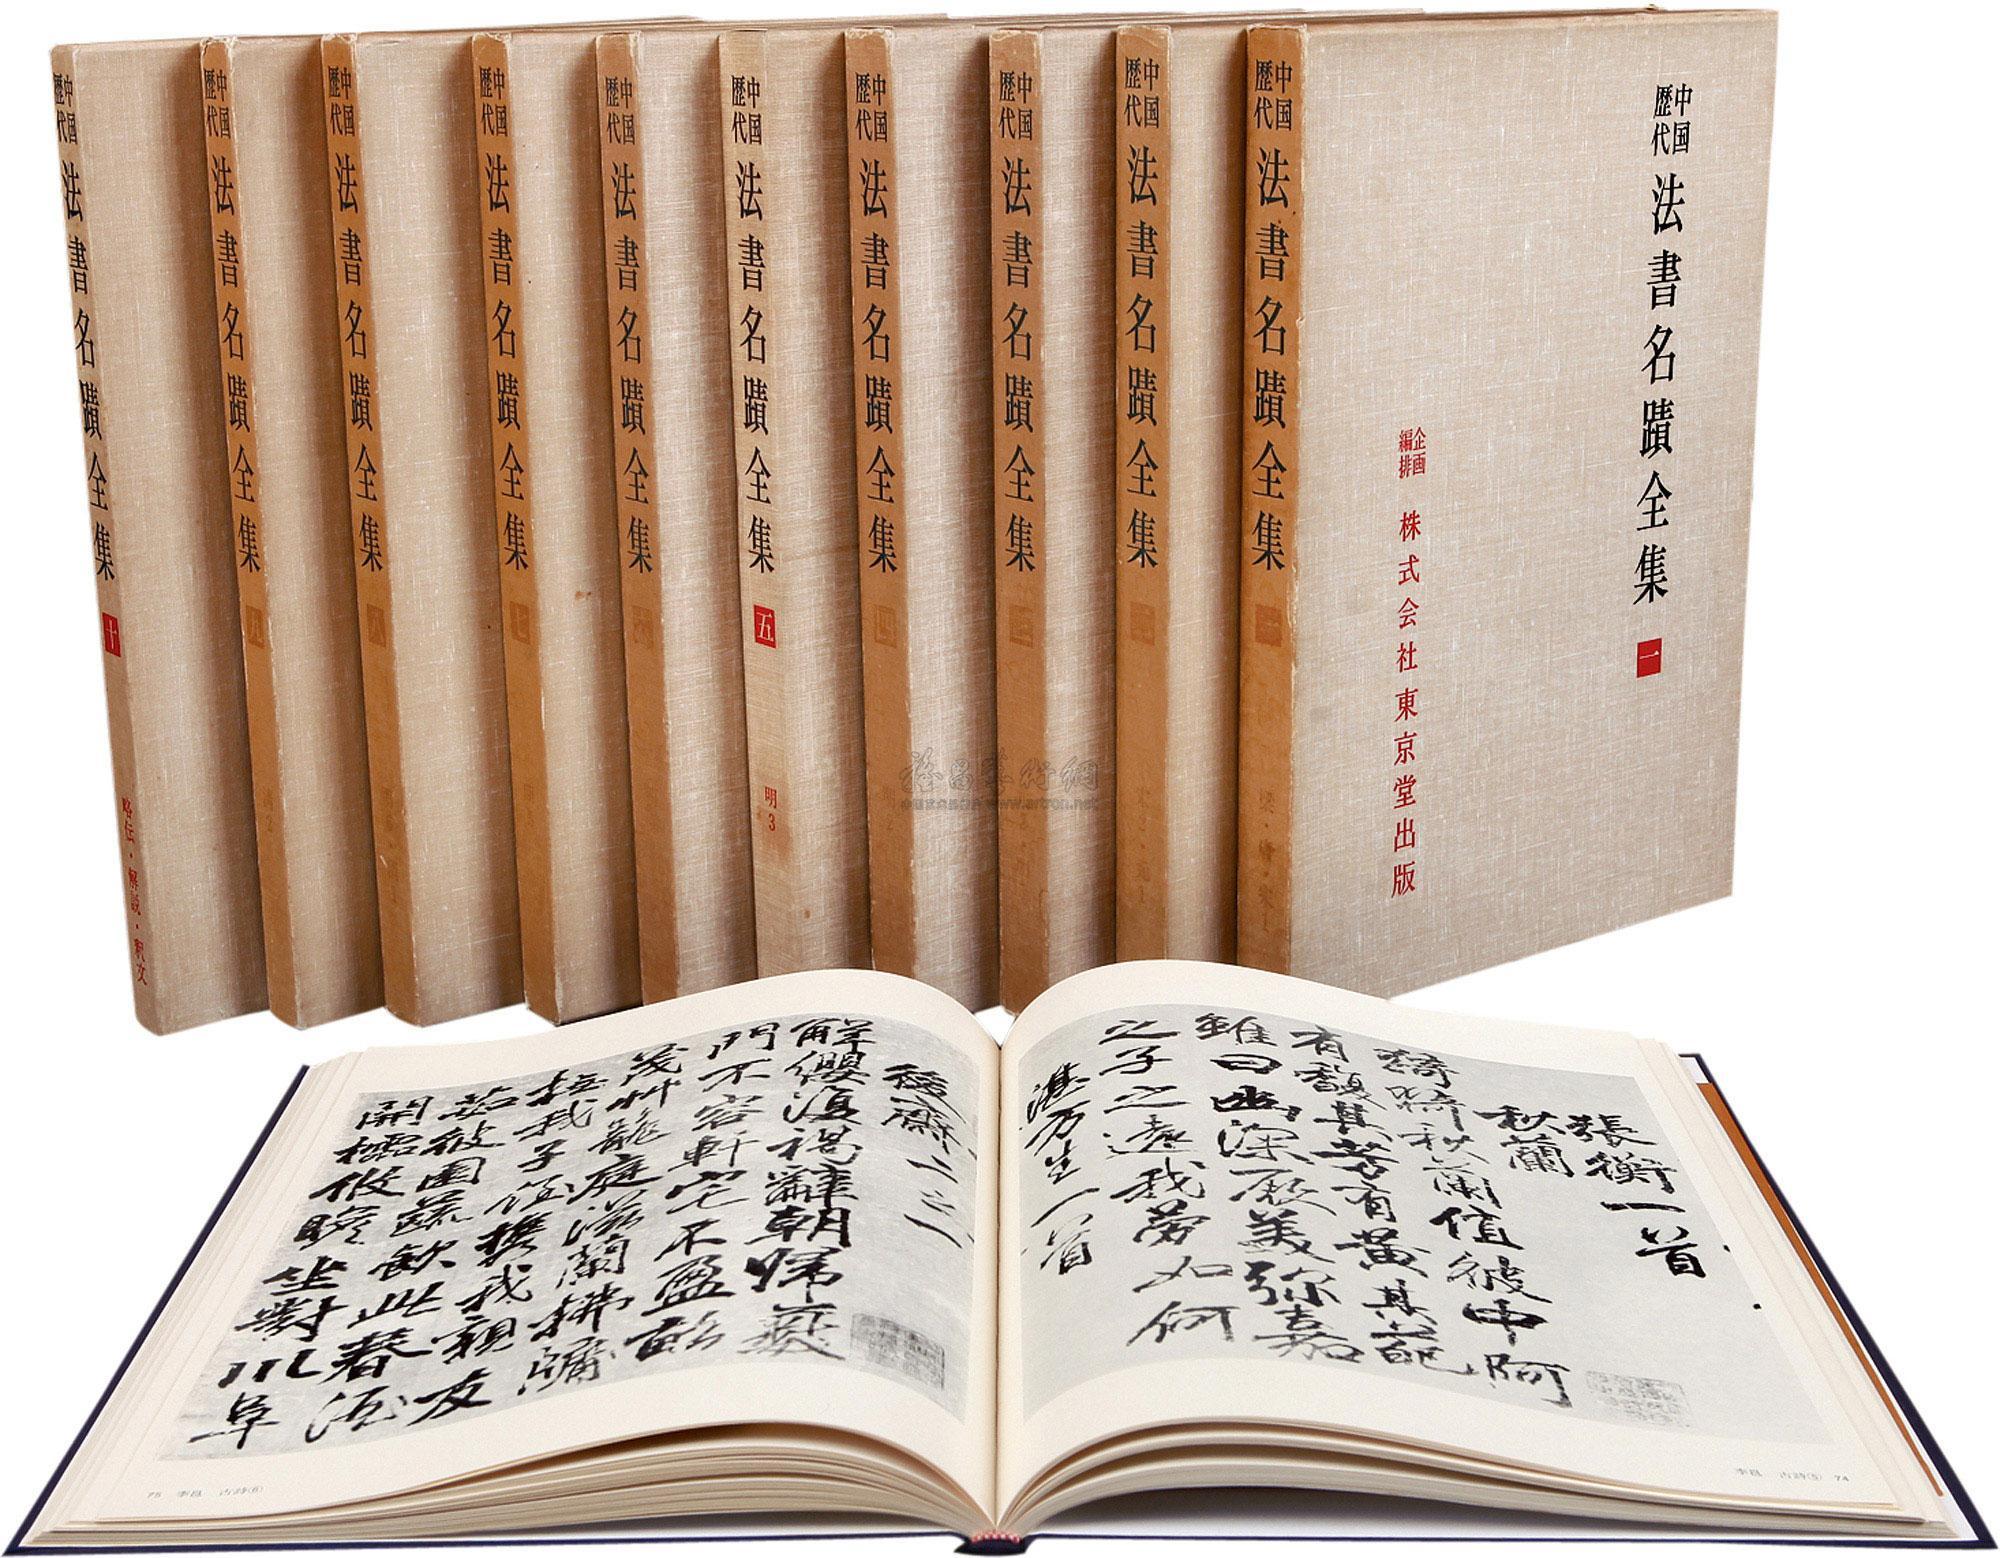 中国
歴代
法書名蹟全集
一
企画
編排
株式会社東京堂出版
中国
歴代
法書名蹟全集
中国
歴代
法書名蹟全集
中国
歴代
法書名蹟全集
中国
歴代
法書名蹟全集
中国
歴代
法書名蹟全集
五
明3
中国
歴代
法書名蹟全集
中国
歴代
法書名蹟全集
中国
歴代
法書名蹟全集
中国
歴代
法書名蹟全集
中国
歴代
法書名蹟全集
十
略伝・解説・釈文
www.artron.net
張衡一首
秋蘭
猗猗秋蘭值彼中阿
有馥其芳有黄其葩
雖曰幽深厥美弥嘉
之子之遠我勞如何
湛方生一首
後齋二三一
解纓復褐辭朝歸薮
門不容軒宅不盈畝
茂草籠庭滋蘭拂牖
撫我子侄攜我親友
茹彼園蔬飲此春酒
開櫺攸瞻坐對川阜
古詩⑤ 74
75 古詩⑥